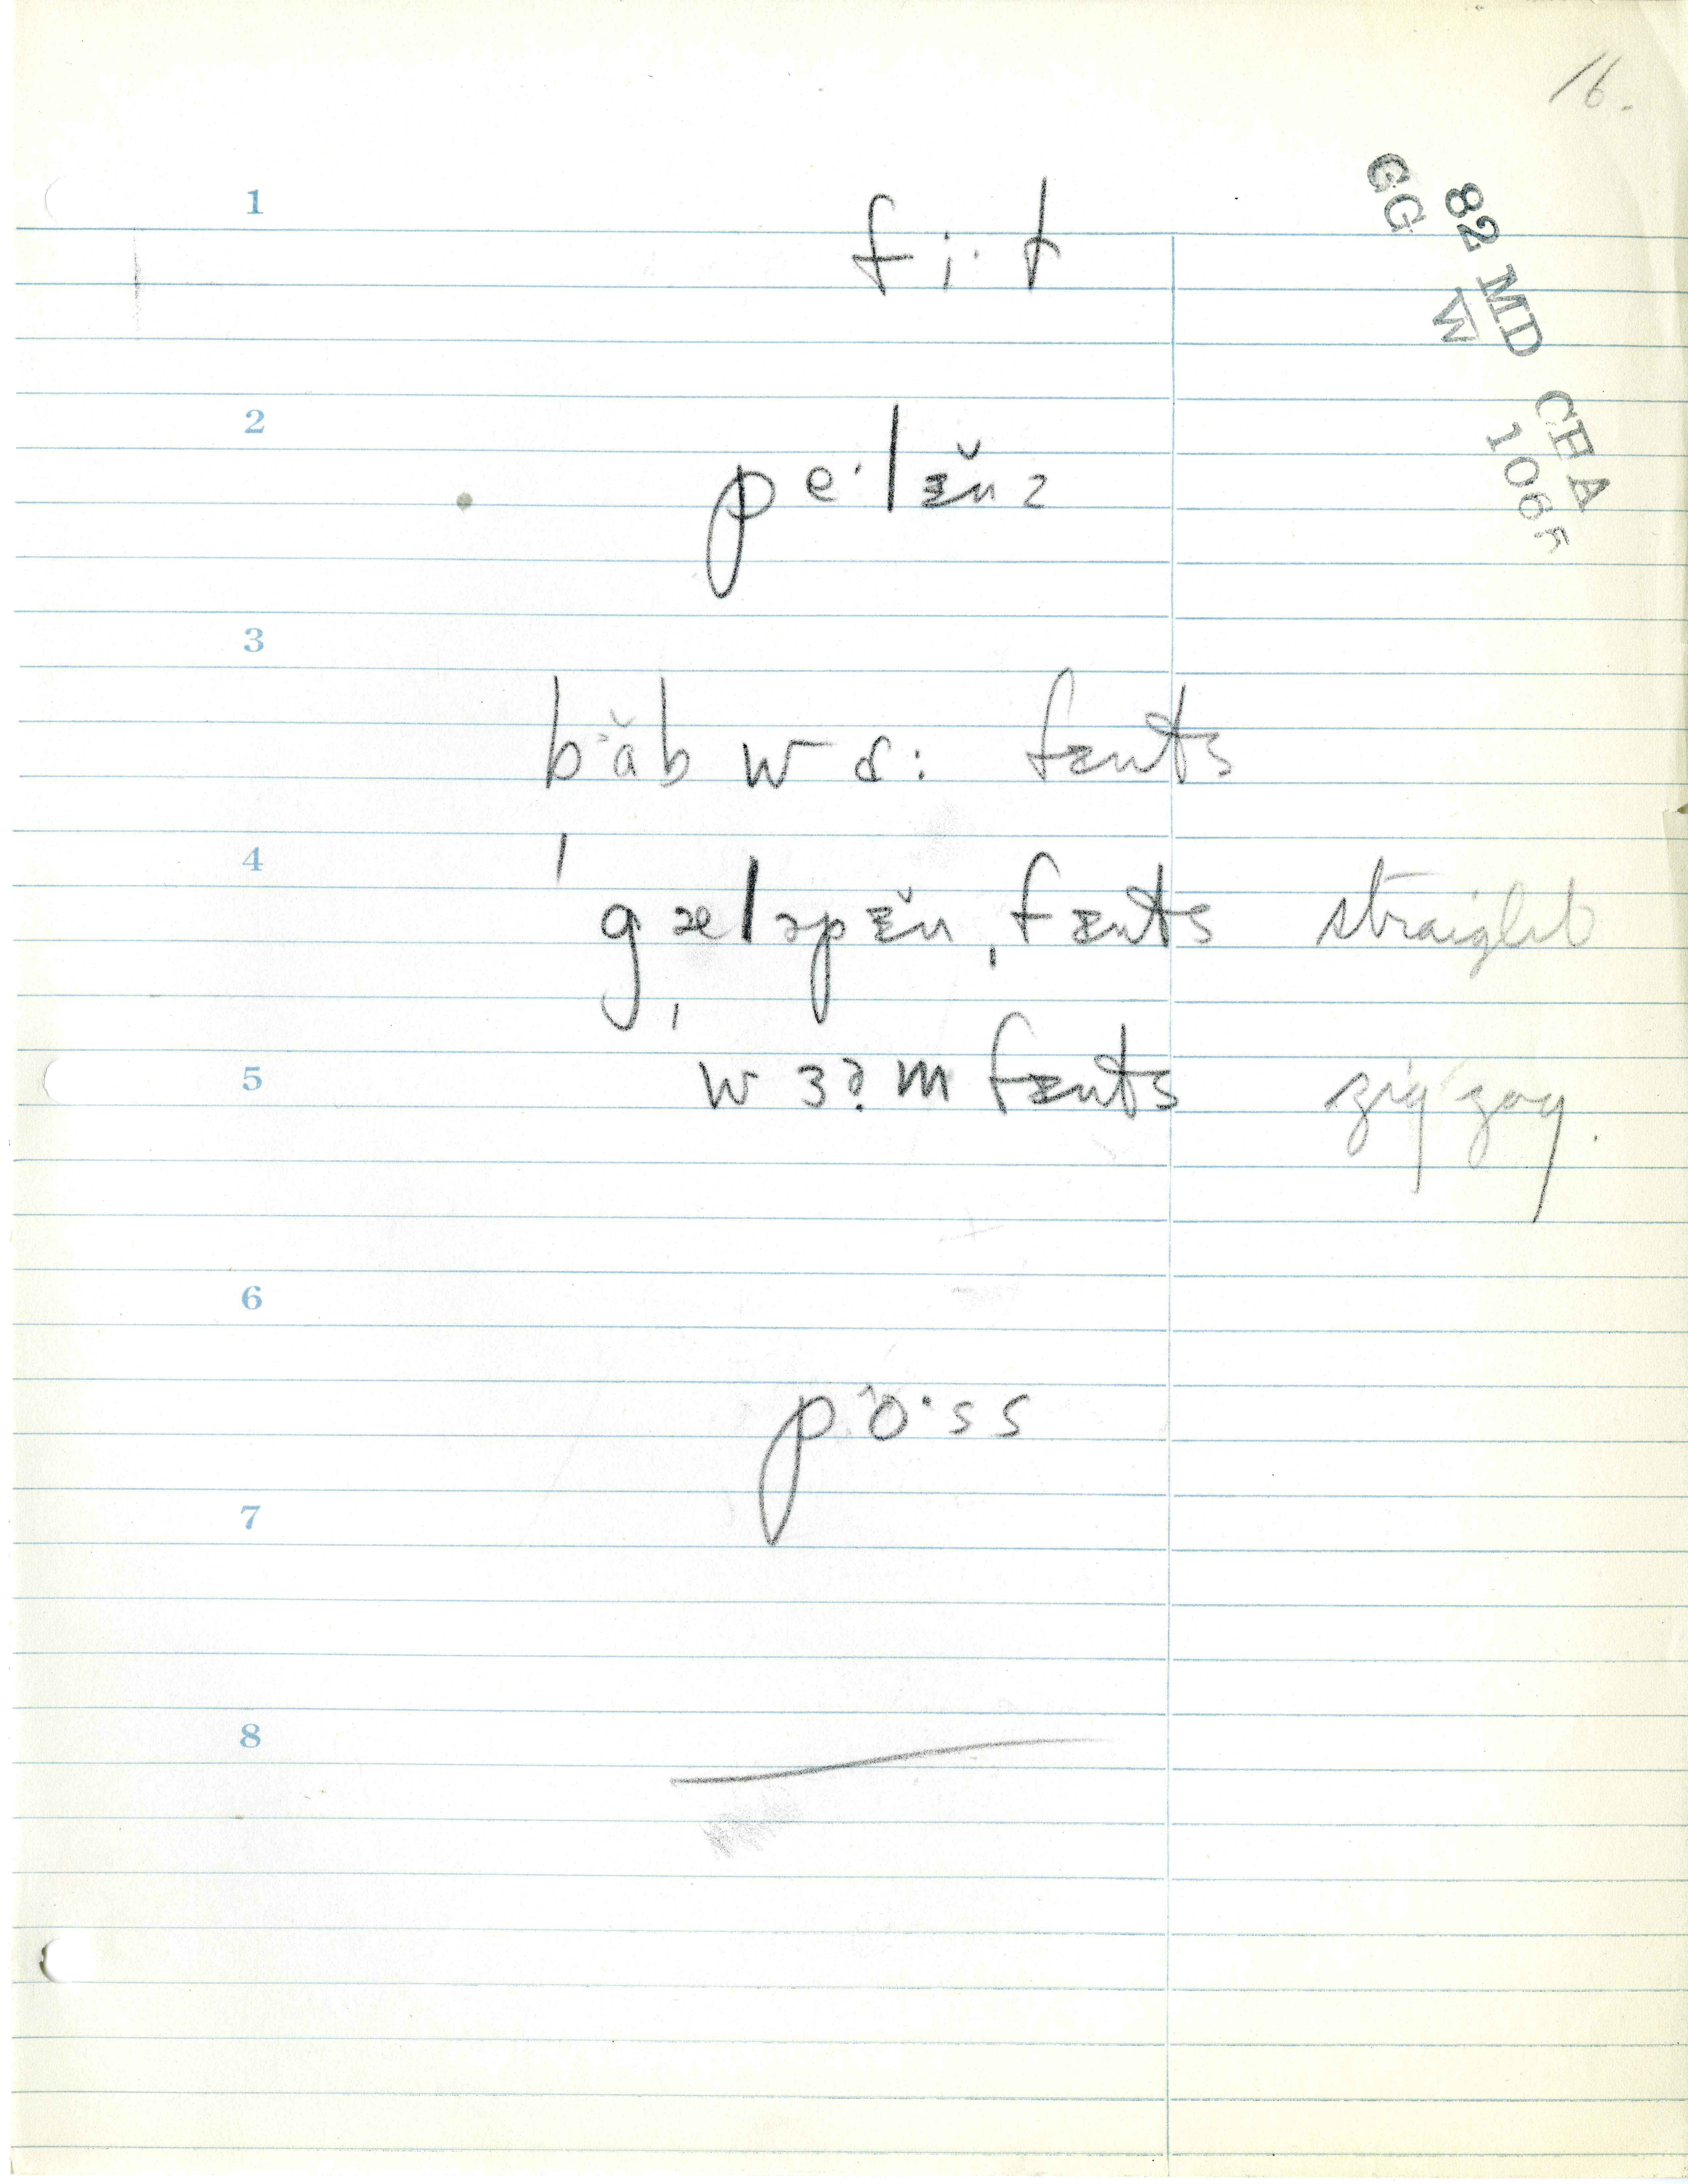 16.
82 MD CHA
GG W 1065
1
fi·t
2
pe·lɪ̆nz
3
bɑ̆b wɑ: fɛnts
4
ˈgæləpɪ̆nˌfɛnts straight
5
ˌwɜəm fɛnts zig zag.
6
po·ss
7
8